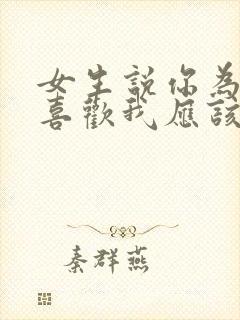 女生說你為
喜歡我應該
秦群燕